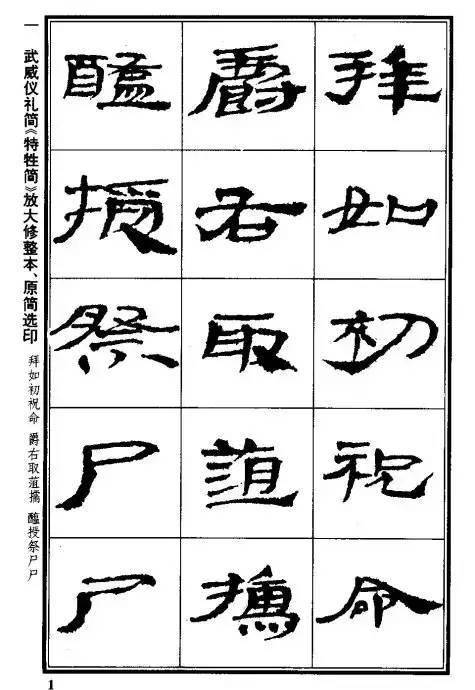 拜如初祝命
爵右取菹擩
醢授祭尸尸
一 武威仪礼简《特牲简》放大修整本、原简选印
拜如初祝命 爵右取菹擩 醢授祭尸尸
1